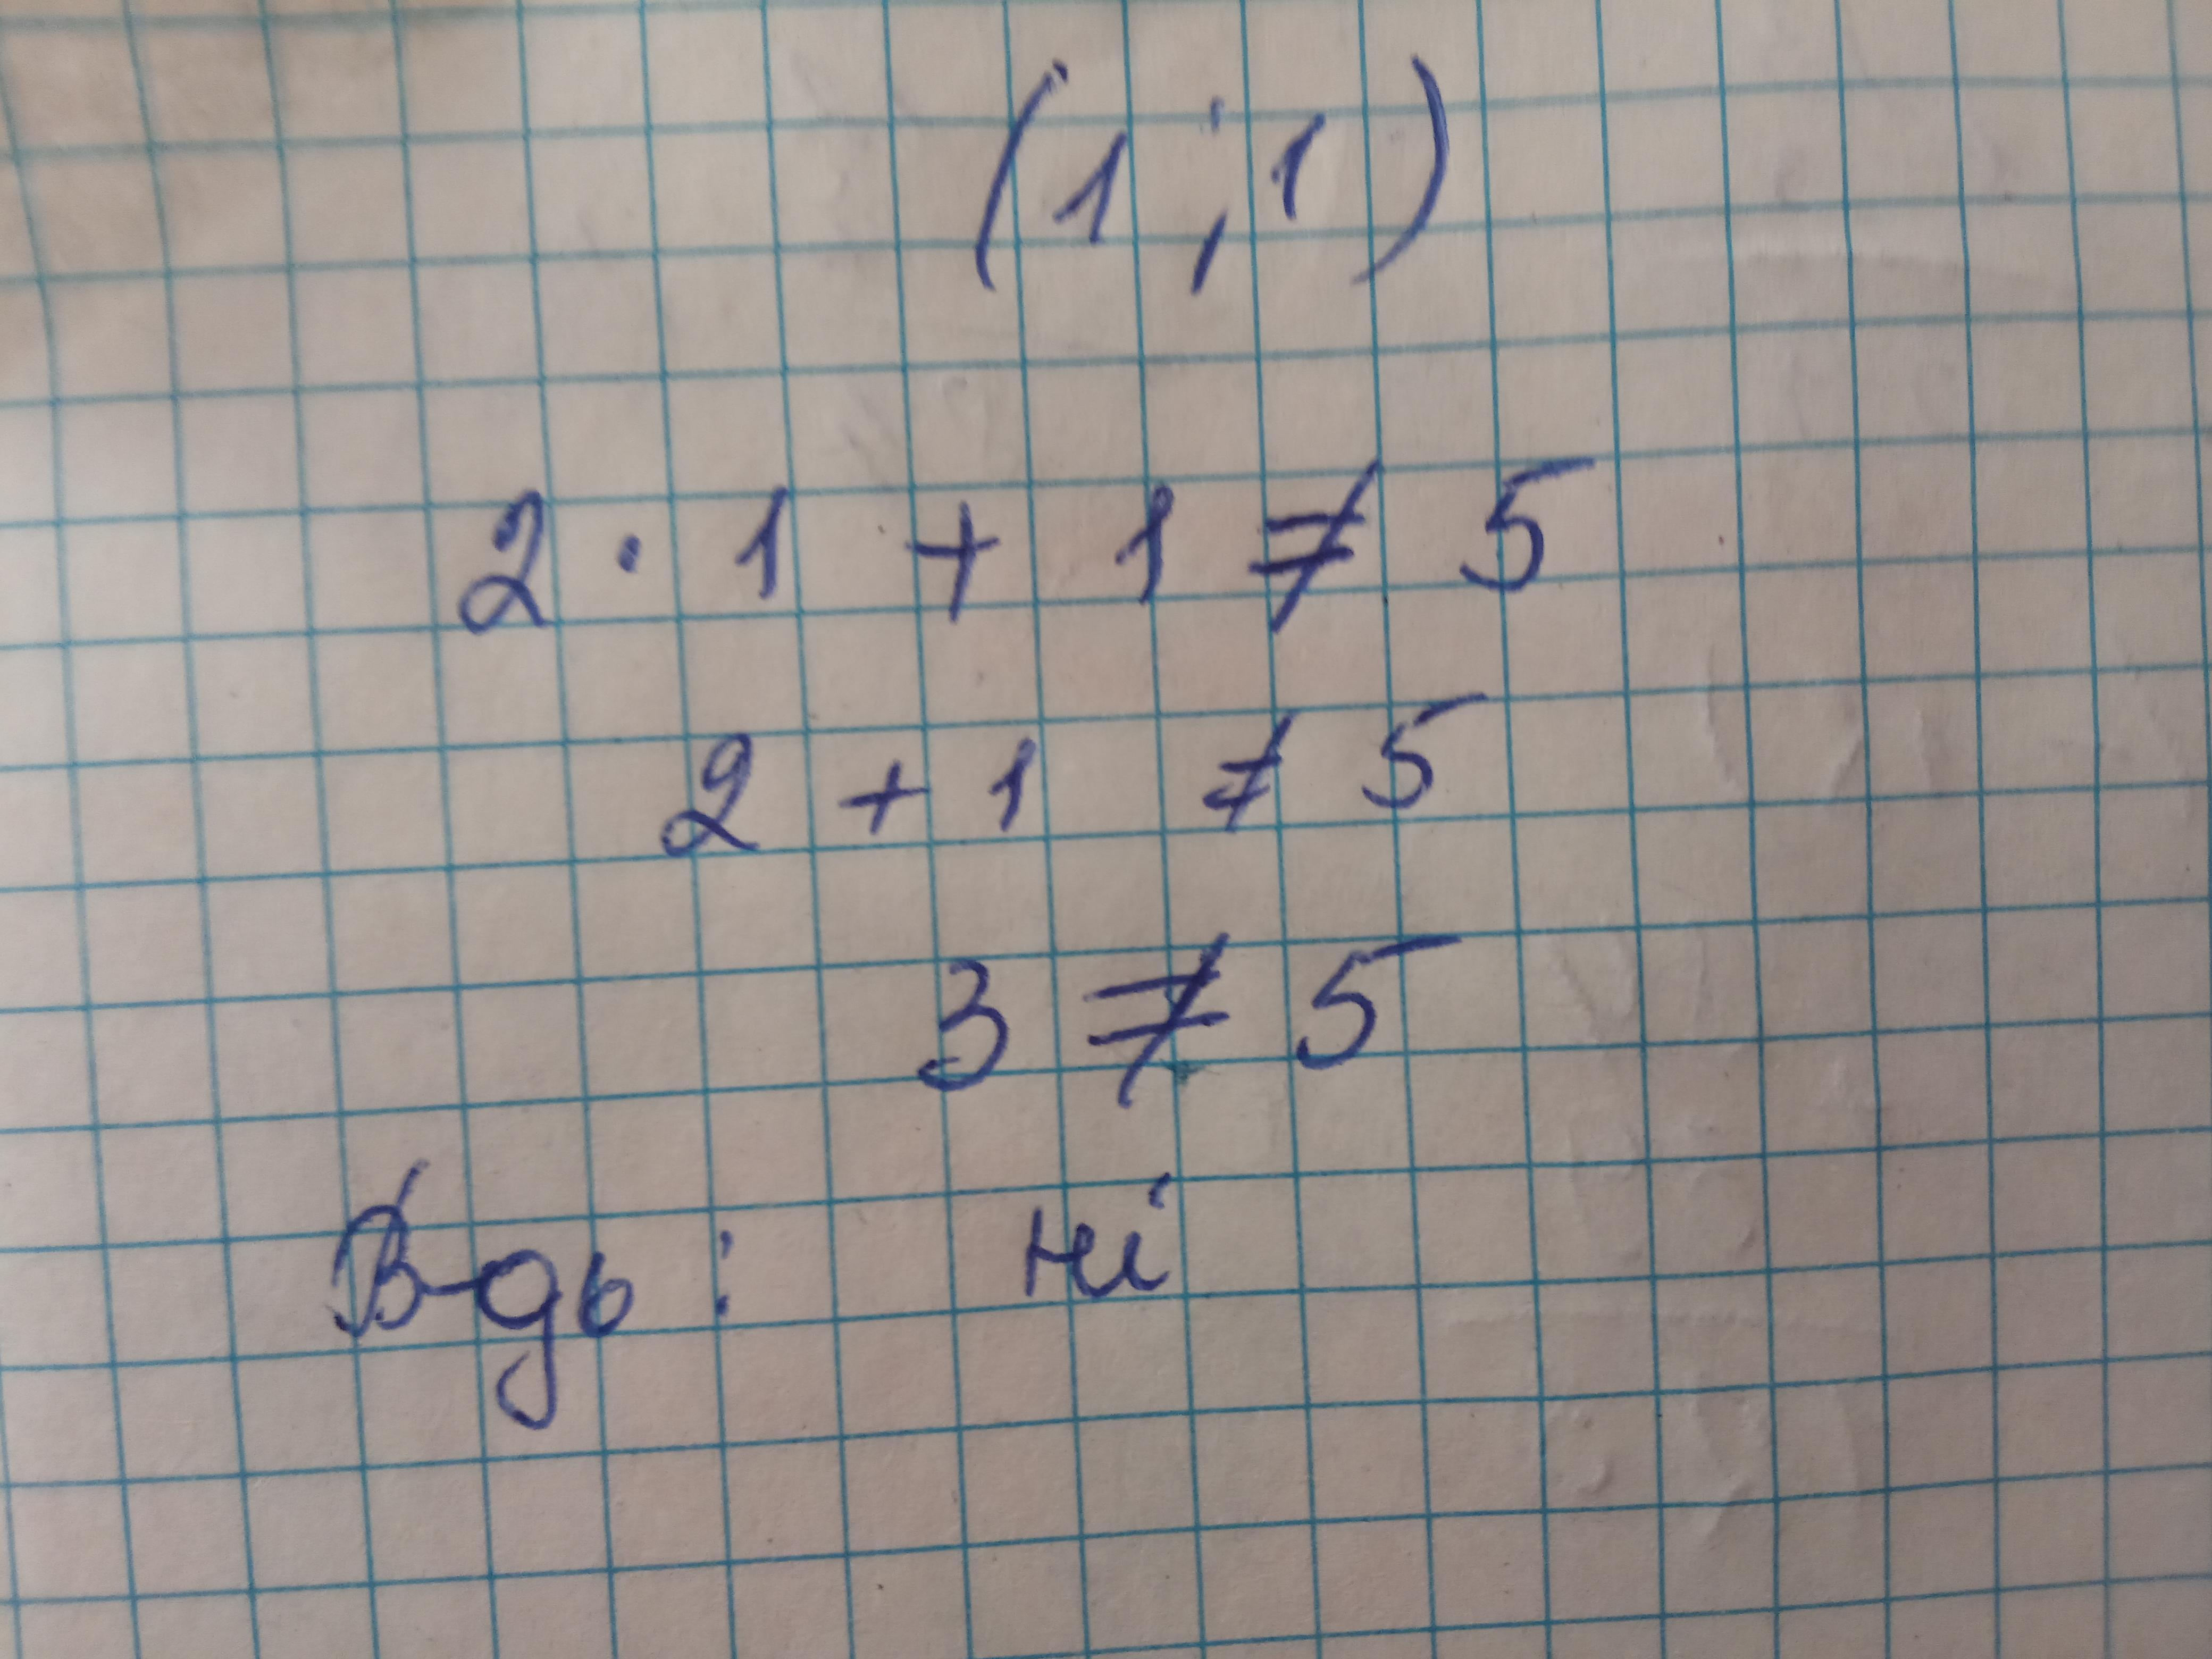 (1 ; 1)
2 · 1 + 1 ≠ 5
2 + 1 ≠ 5
3 ≠ 5
В-дь : ні